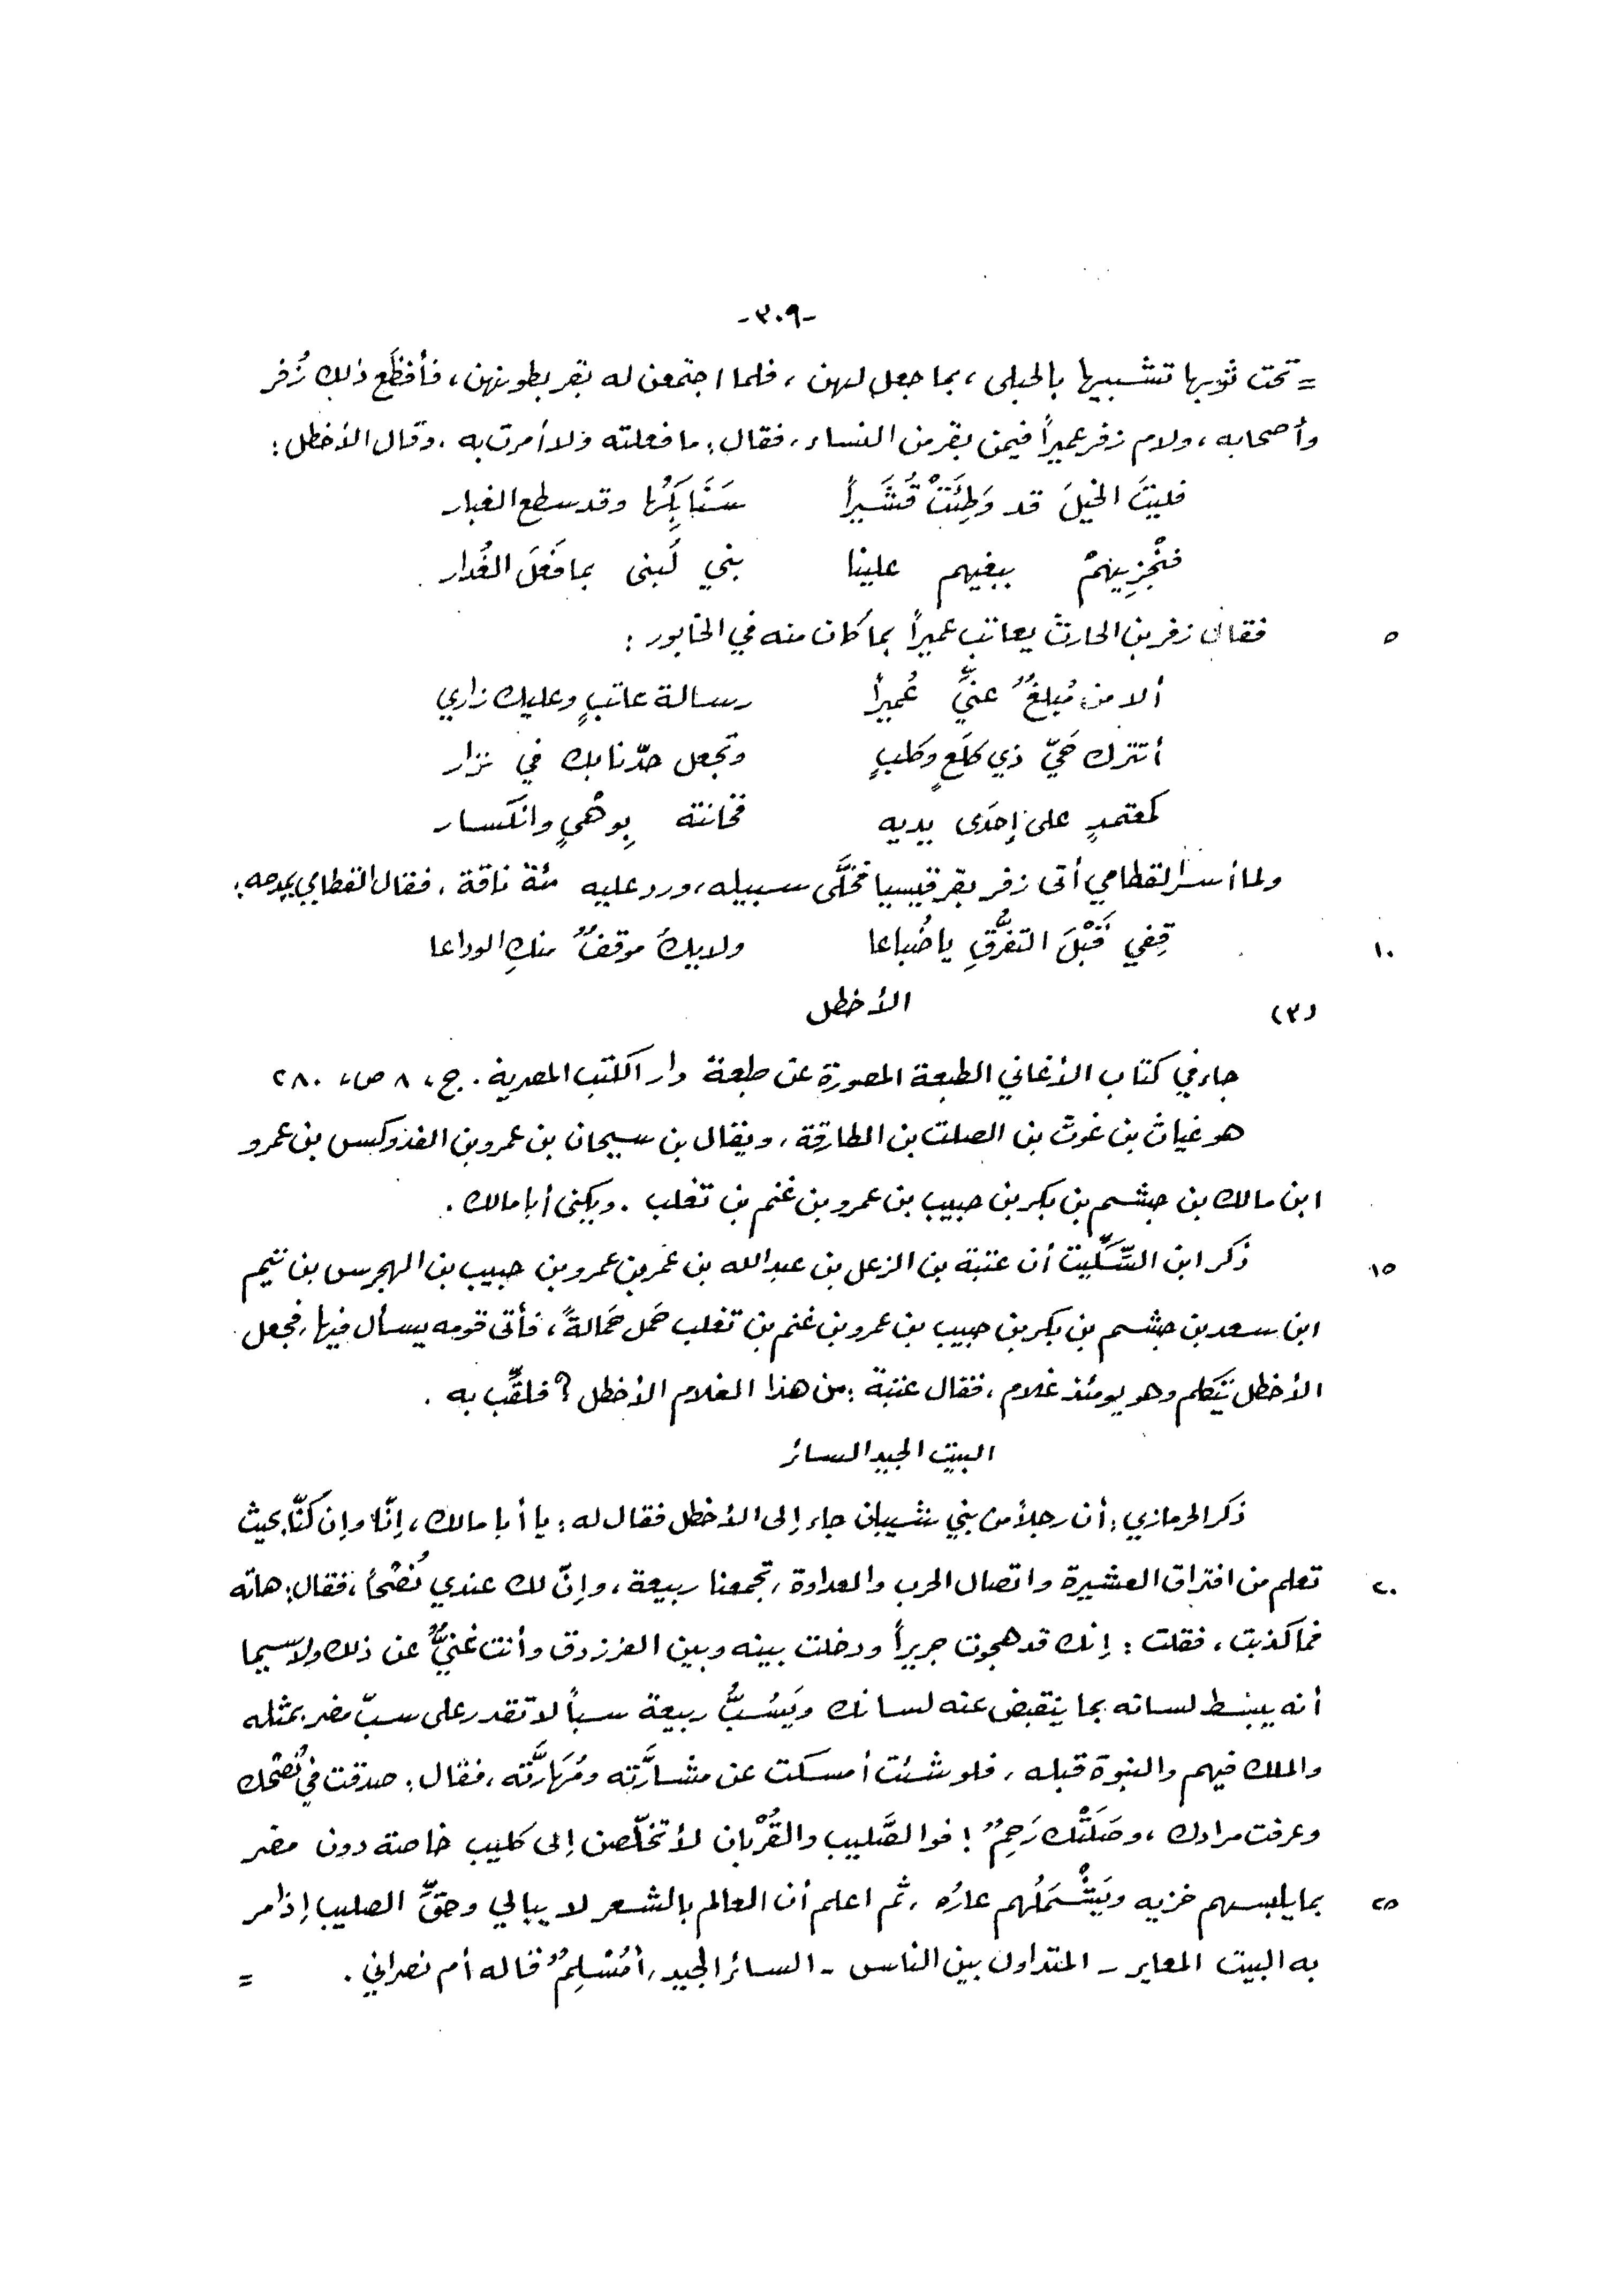 -٣٠٩-
= تحت ثوبها تشبيها بالحبلى، بما جعل لهن، فلما اجتمعن له بقر بطونهن، فأفظَع ذلك زُفر
وأصحابه، ولام زفر عميراً فيمن بقر من النساء، فقال: ما فعلته ولا أمرت به، وقال الأخطل:
فليتَ الخيلَ قد وَطِئَتْ قُشَيراً سَنَابَكُها وقد سطع الغبار
فنْجزِيهمْ ببغيهم علينا بني لُبنى بما فَعَلَ الغُدار.
٥ فقال زفر بن الحارث يعاتب عميراً بما كان منه في الخابور:
ألا من مُبلغٌ عنيِّ عُميراً رسالة عاتبٍ وعليك زاري
أتترك حَيّ ذي كلَعٍ وكلبٍ وتجعل حدّنا بك في نزار
كمعتمدٍ على إحَدى يديه فخانته بِوهْيٍ وانكسار
ولما أسر القطامي أتى زفر بقرقيسيا فخلَّى سبيله، ورد عليه مئة ناقة، فقال القطامي يمدحه:
١٠ قِفي قَبْلَ التفرُّقِ يا ضُباعا ولا يكُ موقفٌ منكِ الوداعا
(٣) الأخطل
جاء في كتاب الأغاني الطبعة المصورة عن طبعة دار الكتب المصرية. ج، ٨ ص، ٢٨٠
هو غياث بن غوث بن الصلت بن الطارقة، ويقال بن سيحان بن عمرو بن الفدوكس بن عمرو
ابن مالك بن جشم بن بكر بن حبيب بن عمرو بن غنم بن تغلب. ويكنى أبا مالك.
١٥ ذكر ابن السِّكِّيت أن عتبة بن الزعل بن عبد الله بن عمر بن عمرو بن حبيب بن الهجرس بن تيم
ابن سعد بن جشم بن بكر بن حبيب بن عمرو بن غنم بن تغلب حَمل حَمالةً، فأتى قومه يسأل فيها، فجعل
الأخطل يتكلم وهو يومئذ غلام، فقال عتبة: من هذا الغلام الأخطل؟ فلقِّب به.
البيت الجيد السائر
ذكر الحرمازي: أن رجلاً من بني شيبان جاء إلى الأخطل فقال له: يا أبا مالك، إنّا وإن كنّا بحيث
٢٠ تعلم من افتراق العشيرة واتصال الحرب والعداوة، تجمعنا ربيعة، وإنّ لك عندي نُصْحاً، فقال: هاته
فما كذبت، فقلت: إنك قد هجوت جريراً ودخلت بينه وبين الفرزدق وأنت غنيٌّ عن ذلك ولا سيما
أنه يبسط لسانه بما ينقبض عنه لسانك ويَسُبُّ ربيعة سباً لا تقدر على سبّ مضر بمثله
والملك فيهم والنبوة قبله، فلو شئت أمسكت عن مشارَّته ومُهَارَّته، فقال: صدقت في نُصْحك
وعرفت مرادك، وصَلَتْك رَحِمٌ! فوالصَّليب والقُرْبان لأتخلّصن إلى كليب خاصة دون مضر
٢٥ بما يلبسهم خزيه ويَشْمَلُهم عارُه، ثم اعلم أن العالم بالشعر لا يبالي وحقِّ الصليب إذا مر
به البيت المعاير - المتداول بين الناس - السائر الجيد، أمُسْلِمٌ قاله أم نصراني. =